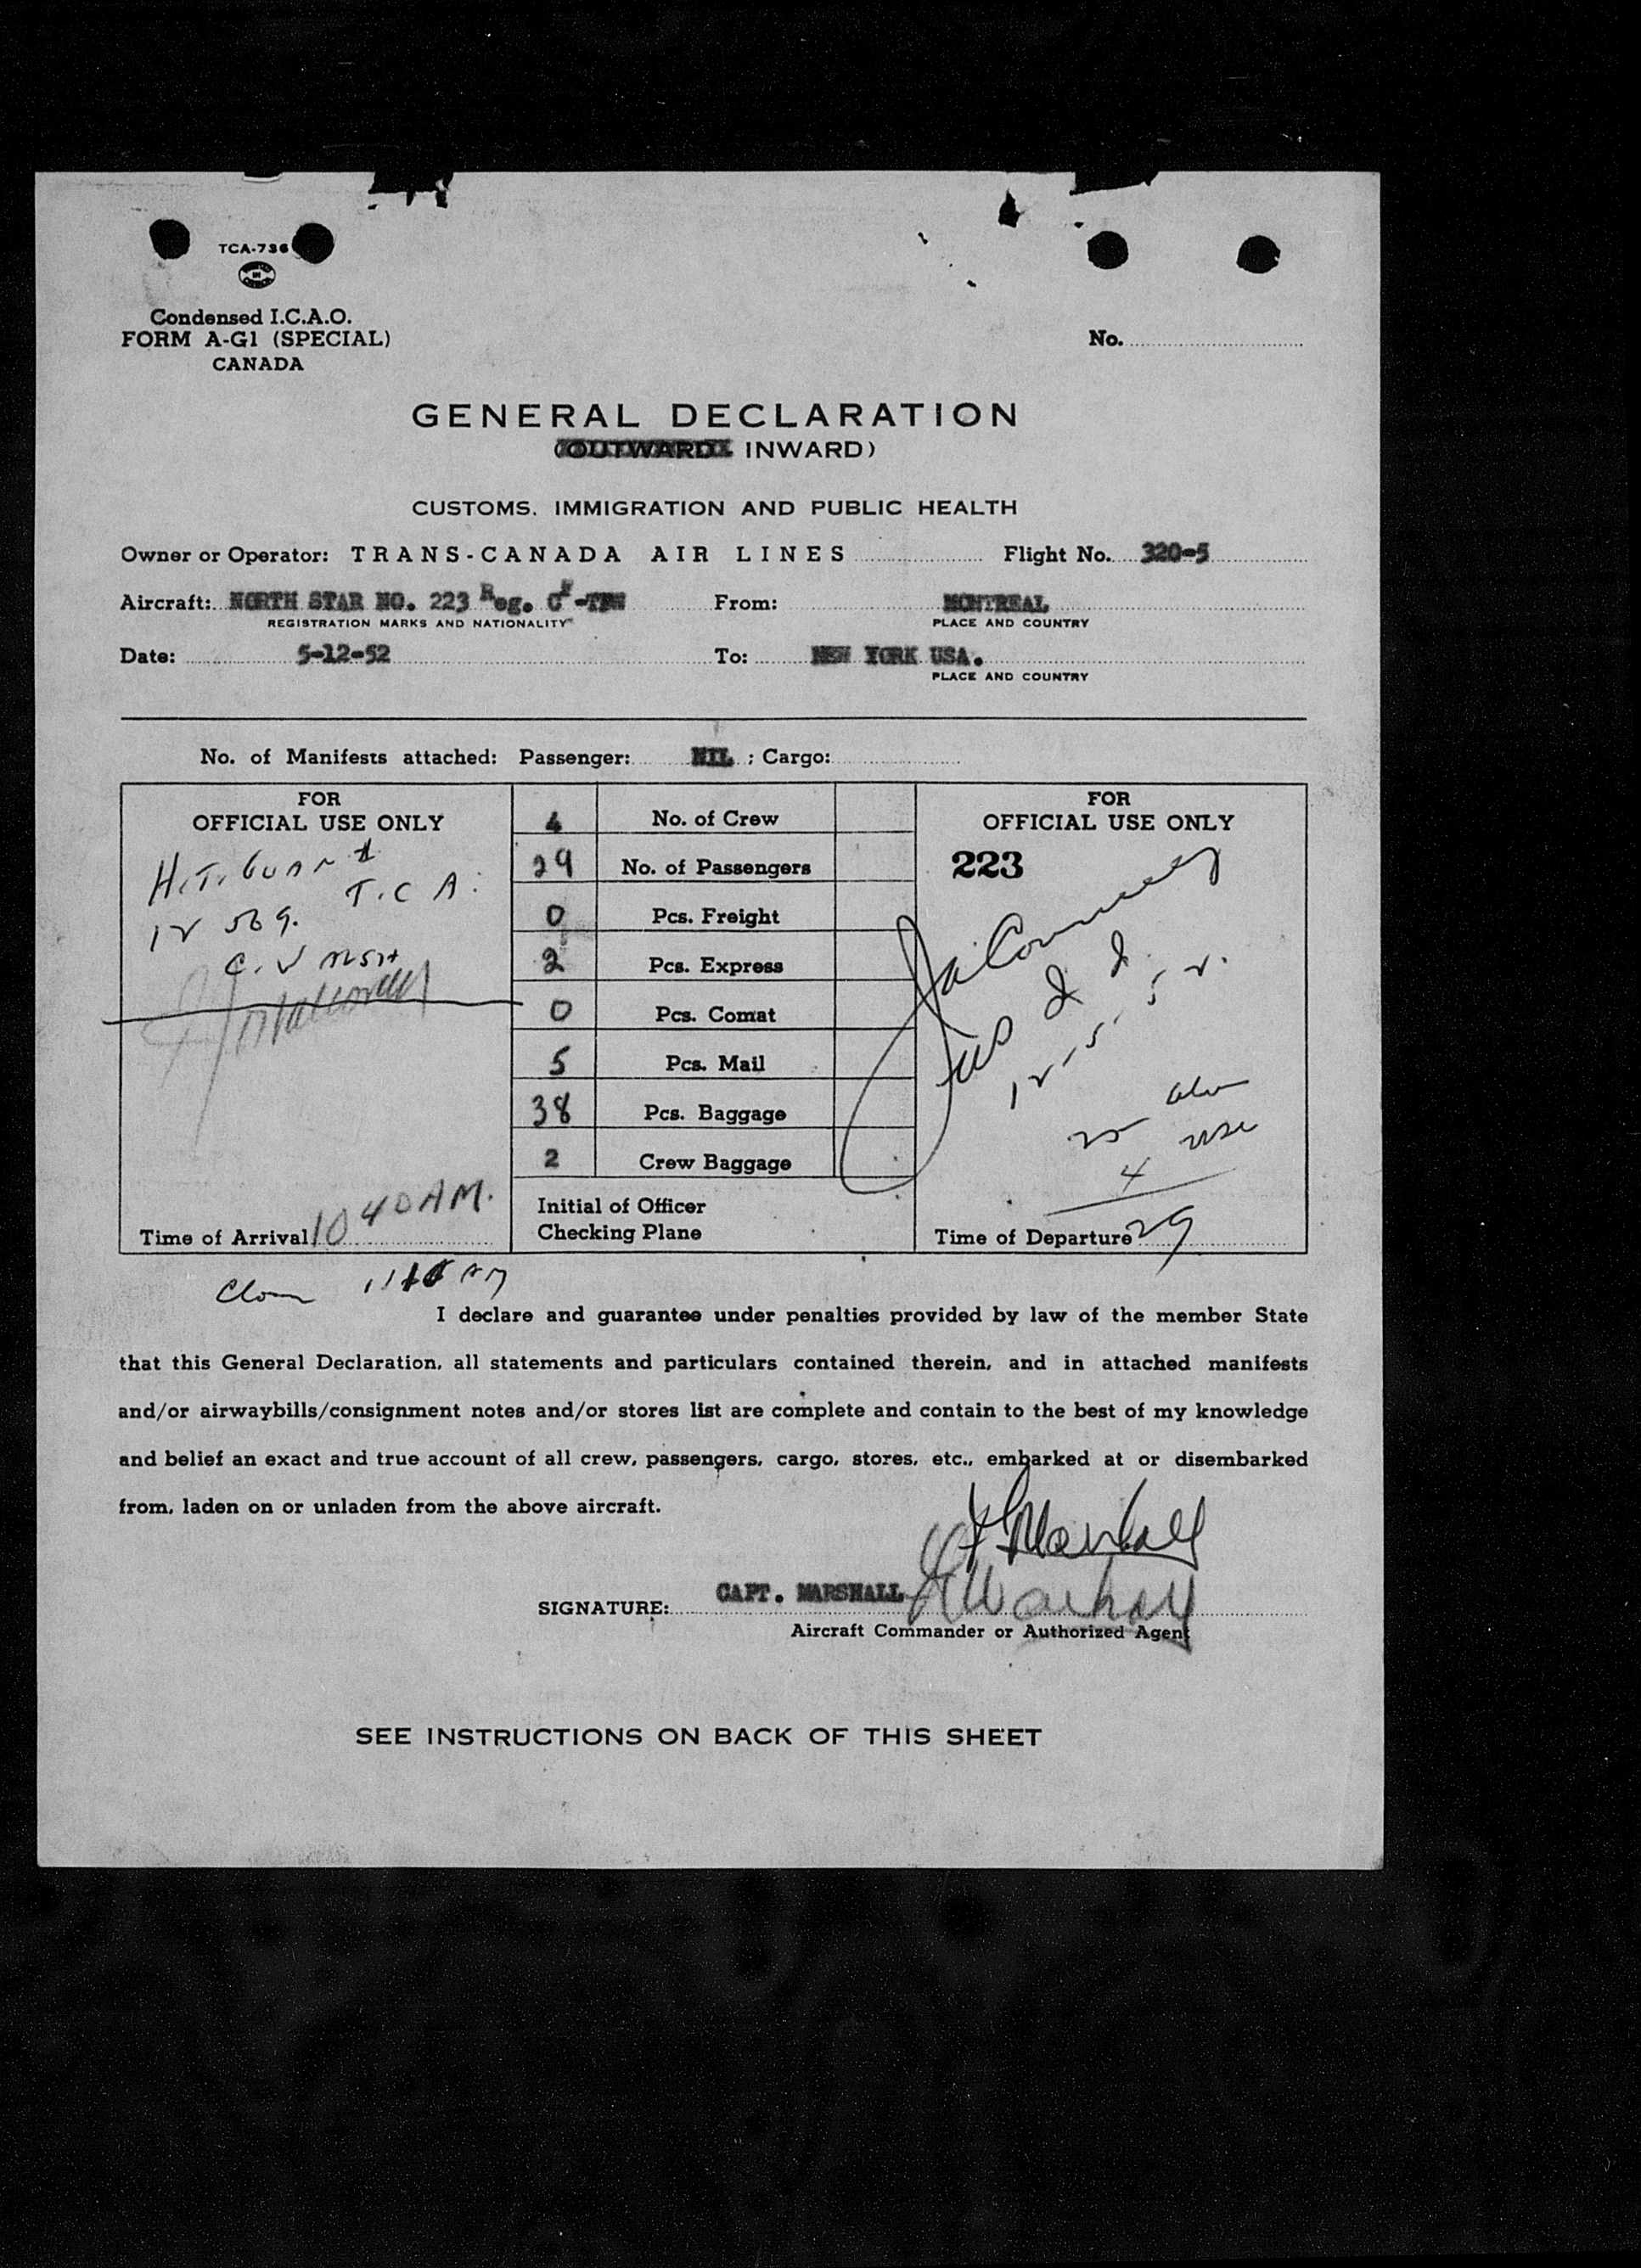 TCA-736
Condensed I.C.A.O.
FORM A-G1 (SPECIAL)
CANADA
No.
GENERAL DECLARATION
(OUTWARD INWARD)
CUSTOMS, IMMIGRATION AND PUBLIC HEALTH
Owner or Operator: TRANS-CANADA AIR LINES Flight No. 320-5
Aircraft: NORTH STAR NO. 223 Reg. CF- From: MONTREAL
REGISTRATION MARKS AND NATIONALITY PLACE AND COUNTRY
Date: 5-12-52 To: NEW YORK USA.
PLACE AND COUNTRY
No. of Manifests attached: Passenger: NIL ; Cargo:
FOR OFFICIAL USE ONLY
T.C.A.
4 No. of Crew
29 No. of Passengers
0 Pcs. Freight
2 Pcs. Express
0 Pcs. Comat
5 Pcs. Mail
38 Pcs. Baggage
2 Crew Baggage
Initial of Officer
Checking Plane
Time of Arrival 10 40 AM.
FOR OFFICIAL USE ONLY
223
12-5-52.
25
4 USC
29
Time of Departure
I declare and guarantee under penalties provided by law of the member State
that this General Declaration, all statements and particulars contained therein, and in attached manifests
and/or airwaybills/consignment notes and/or stores list are complete and contain to the best of my knowledge
and belief an exact and true account of all crew, passengers, cargo, stores, etc., embarked at or disembarked
from, laden on or unladen from the above aircraft.
SIGNATURE: CAPT. MARSHALL
Aircraft Commander or Authorized Agent
SEE INSTRUCTIONS ON BACK OF THIS SHEET